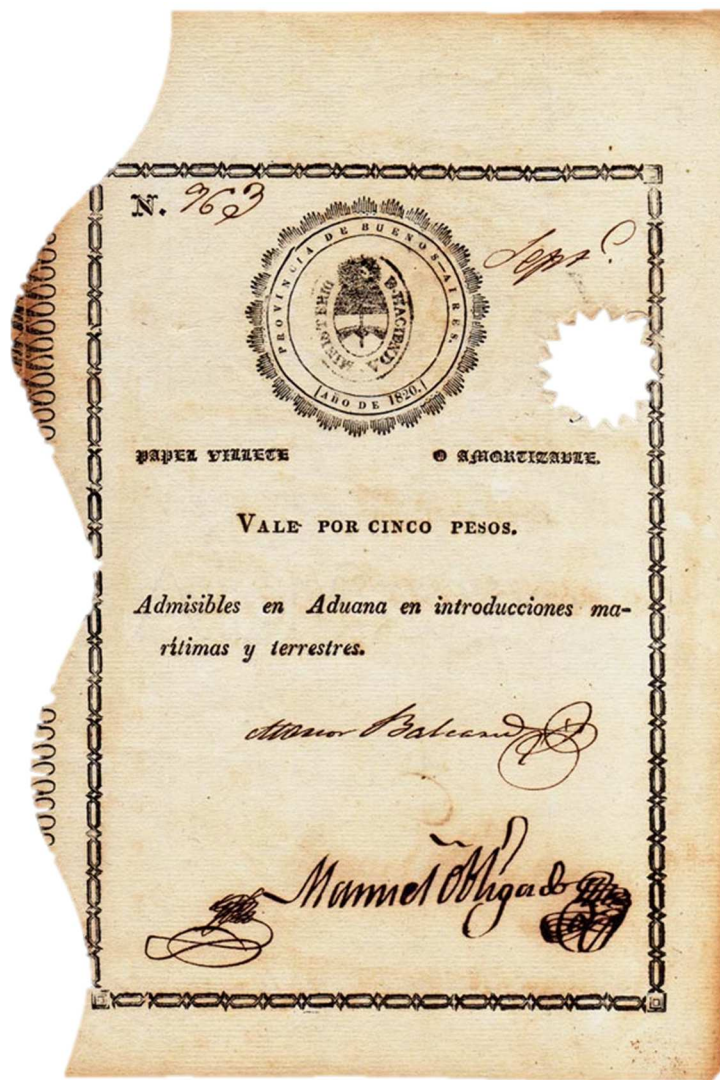 N. 963
PROVINCIA DE BUENOS-AIRES.
MINISTERIO D. HACIENDA
AÑO DE 1820.
PAPEL VILLETE O AMORTIZABLE.
VALE POR CINCO PESOS.
Admisibles en Aduana en introducciones ma-
rítimas y terrestres.
Manuel Obligado